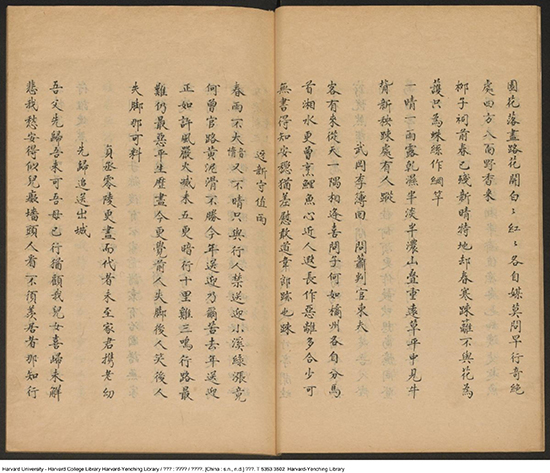 園花落盡路花開白々紅々各自媒莫問早行奇絕
處四方八面野香來
柳子祠前春已殘新晴特地却春寒疎籬不與花為
護只為蛛絲作網竿
一晴一雨路乾濕半淡半濃山疊重遠草平中見牛
背新秧踈處有人蹤
武岡李簿回問蕭判官東夫
客有來從天一隅相逢喜問子何如橘州各自分馬
首湘水更曾烹鯉魚心近人遐長作惡離多合少可
無書得知安穩猶差慰敢道韋郎跡也踈
迓新守值雨
春雨不大又不晴只與行人柴送迎小溪綠漲竟
何曾官路黃泥滑不勝今年送迎乃爾苦去年送迎
正如許風嚴犬吠未五更暗行十里雞三鳴行路最
難仍最惡平生歷盡今更覺前人失脚後人笑後人
失脚那可料
負丞零陵更盡而代者未至家君携老幼
先歸追送出城
吾父先歸吾未可吾母已行猶顧我兒女喜歸未解
悲我愁安得似兒癡墻頭人看不須羨居者那知行
Harvard University - Harvard College Library Harvard-Yenching Library / ??? : ???? / ????. [China : s.n., n.d.] ???. T 5353 3502 Harvard-Yenching Library